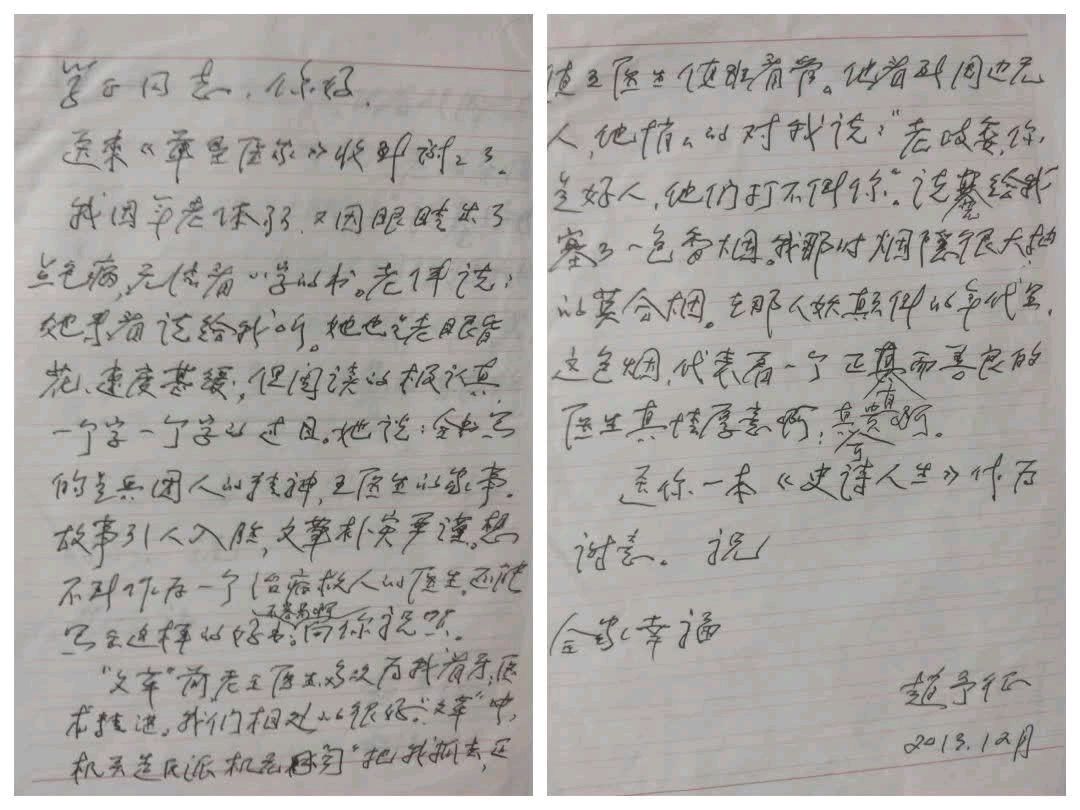 同志,你好,
送来《军垦医家》收到谢谢了。
我因年老体弱,又因眼睛出了
点毛病,无法看小字的书。老伴说:
她来看读给我听。她也是老眼昏
花、速度甚缓,但阅读的极认真,
一个字一个字的过目。她说:全书写
的是兵团人的精神,王医生的家事。
故事引人入胜,文笔朴实严谨。想
不到作为一个治病救人的医生,还能
写出这样的好书。不容易啊,向你祝贺!
“文革”前老王医生多次为我看牙,医
术精进。我们相处的很好。“文革”中,
机关造反派把我抓去,还
值王医生值班看管。他看到周边无
人,他悄悄的对我说:“老政委,你
是好人,他们打不倒你。”说罢给我
塞了一包香烟。我那时烟瘾很大,抽
的莫合烟。在那人妖颠倒的年代里,
这包烟,代表着一个正直而善良的
医生真情厚意啊,真可贵啊。
送你一本《史诗人生》作为
谢意。祝
全家幸福
赵予征
2013.12月